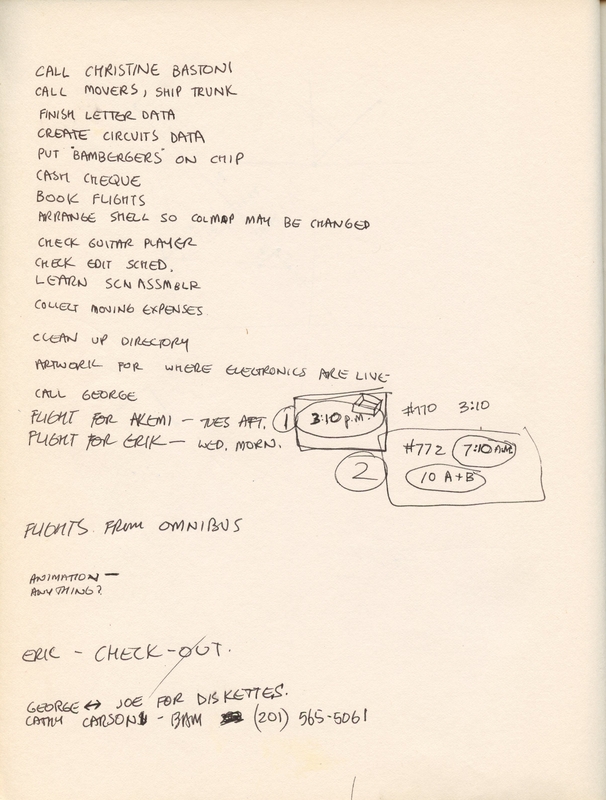 CALL CHRISTINE BASTONI
CALL MOVERS, SHIP TRUNK
FINISH LETTER DATA
CREATE CIRCUITS DATA
PUT "BAMBERGERS" ON CHIP
CASH CHEQUE
BOOK FLIGHTS
ARRANGE SHELL SO COLMAP MAY BE CHANGED
CHECK GUITAR PLAYER
CHECK EDIT SCHED.
LEARN SCN ASSMBLR
COLLECT MOVING EXPENSES
CLEAN UP DIRECTORY
ARTWORK FOR WHERE ELECTRONICS ARE LIVE
CALL GEORGE
FLIGHT FOR AKEMI - TUES AFT. 1 3:10 p.m. #770 3:10
FLIGHT FOR ERIK - WED. MORN. #772 7:10 A.M.
2 10 A+B
FLIGHTS FROM OMNIBUS
ANIMATION -
ANYTHING?
ERIK - CHECK-OUT.
GEORGE ↔ JOE FOR DISKETTES.
CATHY CARSON - BAM (201) 565-5061